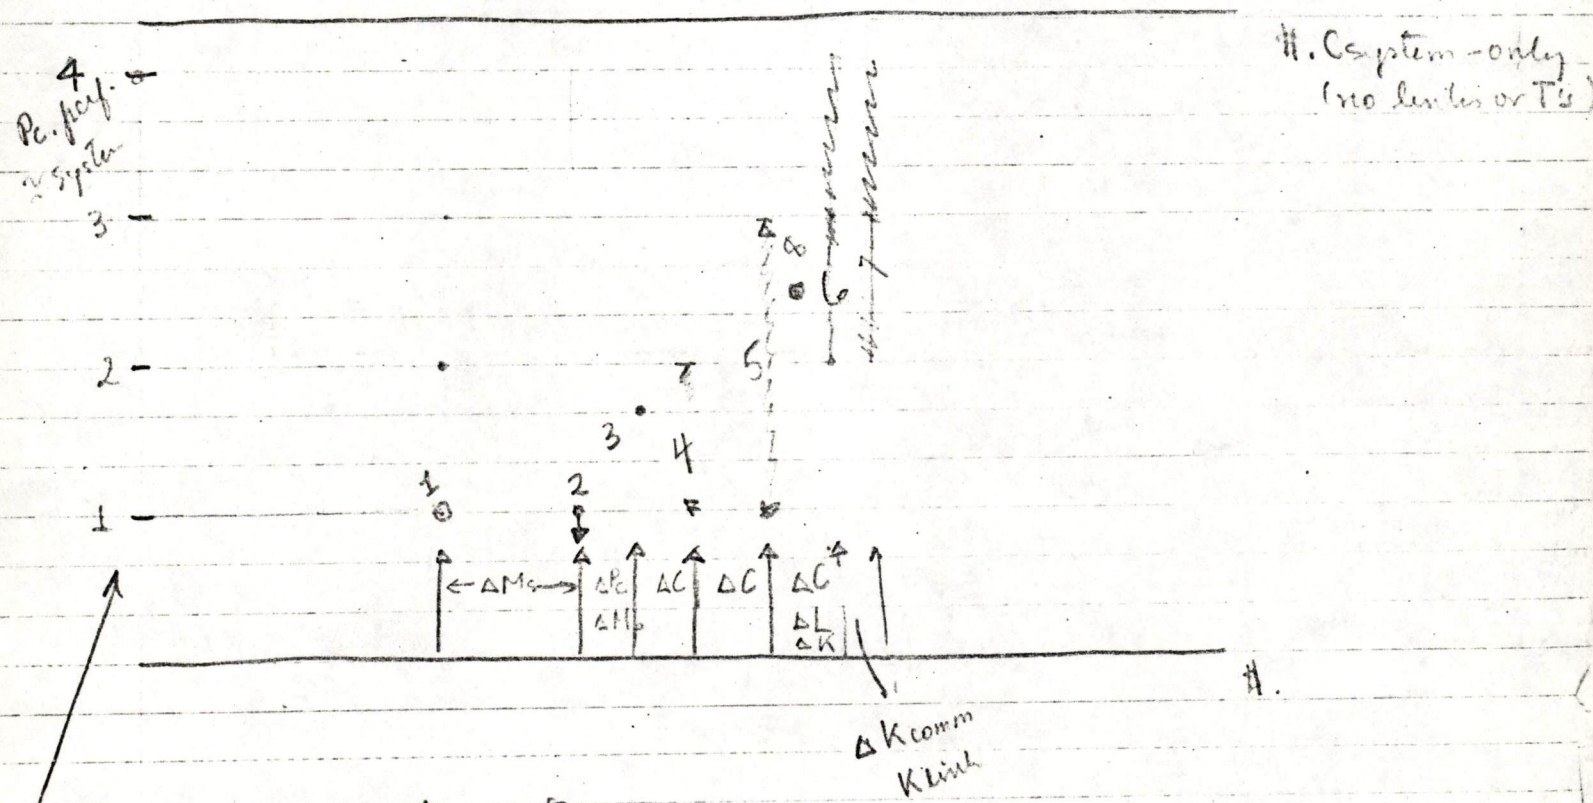 #. C system-only
(no links or T's)
4
Pc. perf.
~ system
3
8
7
6
2
5
3
4
1
2
1
←ΔMs→
ΔPc
ΔC
ΔC
ΔC
ΔMs
ΔL
ΔK
#.
Δ Kcomm
K link